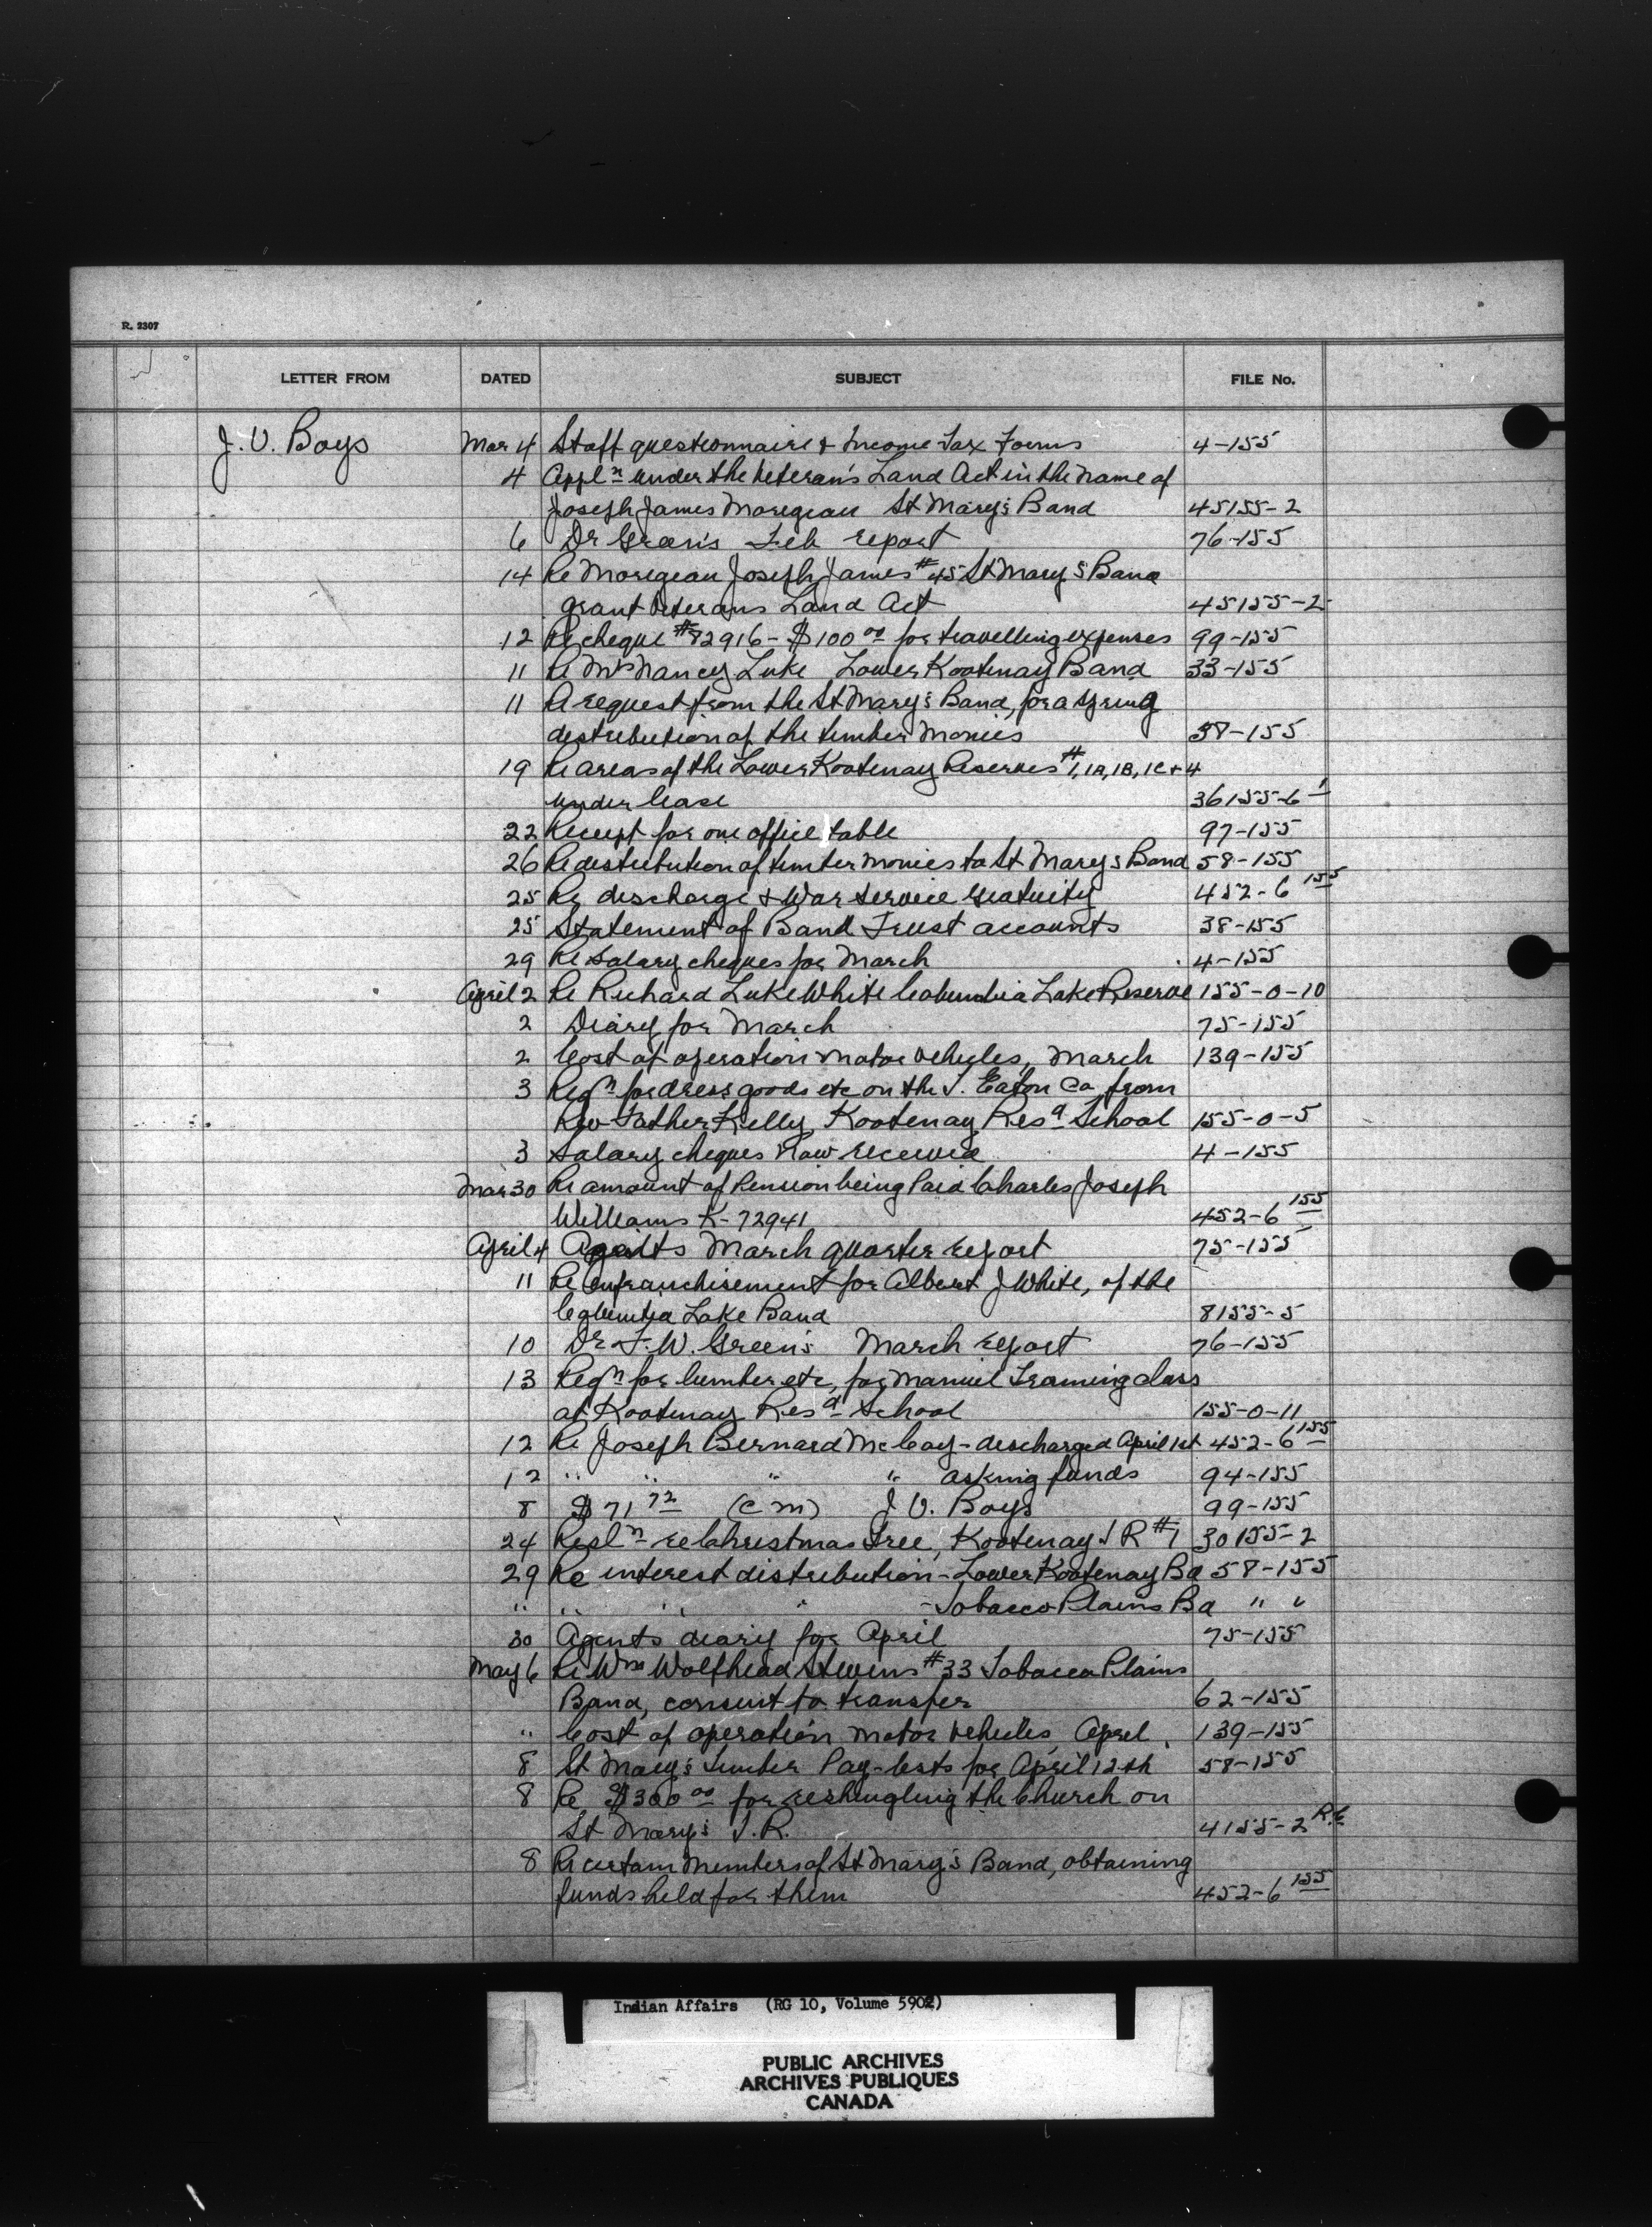 R. 2307
LETTER FROM DATED SUBJECT FILE No.
J. V. Boys Mar 4 Staff questionnaire & Income Tax Forms 4-155
4 Appl<sup>n</sup> under the Veteran's Land Act in the name of
Joseph James Moregeau St Mary's Band 45155-2
6 Dr Green's Feb report 76-155
14 Re Moregeau Joseph James #45 St Mary's Band
grant Veterans Land Act 45155-2
12 Re cheque #82916 - $100 00 for travelling expenses 99-155
11 Re Mrs Nancy Luke Lower Kootenay Band 33-155
11 A request from the St Mary's Band, for a spring
distribution of the timber monies 38-155
19 Re areas of the Lower Kootenay Reserves #1, 1A, 1B, 1C & 4
under lease 36155-6 1
22 Receipt for one office table 97-155
26 Re distribution of timber monies to St Mary's Band 58-155
25 Re discharge & War Service gratuity 452-6 155
25 Statement of Band Trust accounts 38-155
29 Re salary cheques for March 4-155
April 2 Re Richard Luke White Columbia Lake Reserve 155-0-10
2 Diary for March 75-155
2 Cost of operation motor vehicles, March 139-155
3 Reqn for dress goods etc on the T. Eaton Co from
Rev Father Kelly, Kootenay Resd School 155-0-5
3 Salary cheques now received 4-155
Mar 30 Re amount of Pension being Paid Charles Joseph
Williams K-72941 452-6 155
April 4 Agents March quarter report 75-155
11 Re enfranchisement for Albert J White, of the
Columbia Lake Band 8155-5
10 Dr F. W. Green's March report 76-155
13 Reqn for lumber etc, for Manuel Training class
at Kootenay Resd School 155-0-11
12 Re Joseph Bernard McCoy - discharged April 1st 452-6 155
12 " " " " asking funds 94-155
8 $71 72 (C M) J. V. Boys 99-155
24 Resln re Christmas Tree, Kootenay I R #1 30155-2
29 Re interest distribution - Lower Kootenay Bd 58-155
" " " " - Tobacco Plains Bd " "
30 Agents diary for April 75-155
May 6 Re Wm Wolfhead Stevens #33 Tobacco Plains
Band, consent to transfer 62-155
" Cost of operation motor vehicles, April 139-155
8 St Mary's Timber Pay-lists for April 12th 58-155
8 Re $300 00 for reshingling the Church on
St Mary's I.R. 4155-2 R.C
8 Re certain members of St Mary's Band, obtaining
funds held for them 452-6 155
Indian Affairs (RG 10, Volume 5902)
PUBLIC ARCHIVES
ARCHIVES PUBLIQUES
CANADA